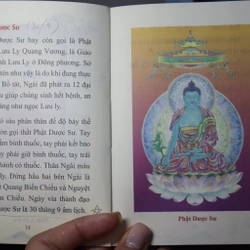 Dược Sư
Dược Sư hay còn gọi là Phật
Lưu Ly Quang Vương, là Giáo
Tịnh Lưu Ly ở Đông phương. Sở
như vậy là do khi đang thực
Bồ Tát, Ngài đã phát ra 12 đại
giúp chúng sinh hết bệnh, an
như ngọc Lưu ly.
số sản phân thân để độ bày thế
còn gọi thất Phật Dược Sư. Tay
ầm bình thuốc, tay phải kết
tay phải giữ bình thuốc, tay trái
kết có thảo
dược. Đứng hầu hai bên Ngài là
Quang Biến Chiếu và Nguyệt
n Chiếu. Ngày vía thánh đản
ược Sư là 30 tháng 9 âm lịch.
14
Phật Dược Sư